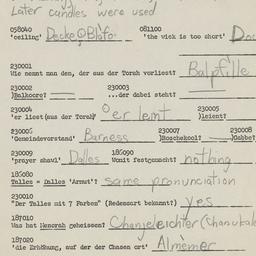 Later candles were used
058040 081100
'ceiling' Decke@Blafo 'the wick is too short' Doc
230001
Wie nennt man den, der aus der Torah vorliest? Balpfille
230002 230003
)Balkoore? ...der dabei steht?
230004 230005
'er liest (aus der Torah)' er leint )leient?
230006 230007 230008
'Gemeindevorstand' Barness )Boschekool? )Gabbe?
230009 186090
'prayer shawl' Dalles Womit festgemacht? nothing
186080
Talles = Dalles 'Armut'? same pronunciation
230010
"Der Talles mit 7 Farben" (Redensart bekannt?) yes
187010
Was hat Menorah geheissen? Chanjeleichter (Chanukale
187020
'die Erhöhung, auf der der Chasen ort' Almemer